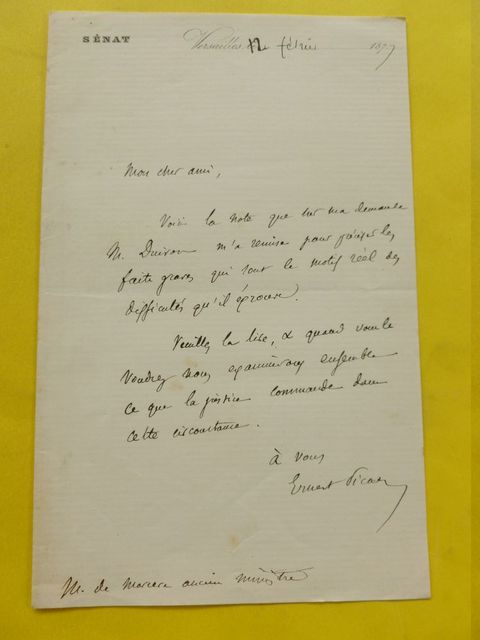 SÉNAT
Versailles, 12 février 1877
Mon cher ami,
Voici la note que sur ma demande
M. m'a remise pour préciser les
faits graves qui sont le motif réel des
difficultés qu'il éprouve.
Veuillez la lire, & quand vous le
voudrez nous examinerons ensemble
ce que la justice commande dans
cette circonstance.
à vous
Ernest Picard
M. de Marcère ancien ministre